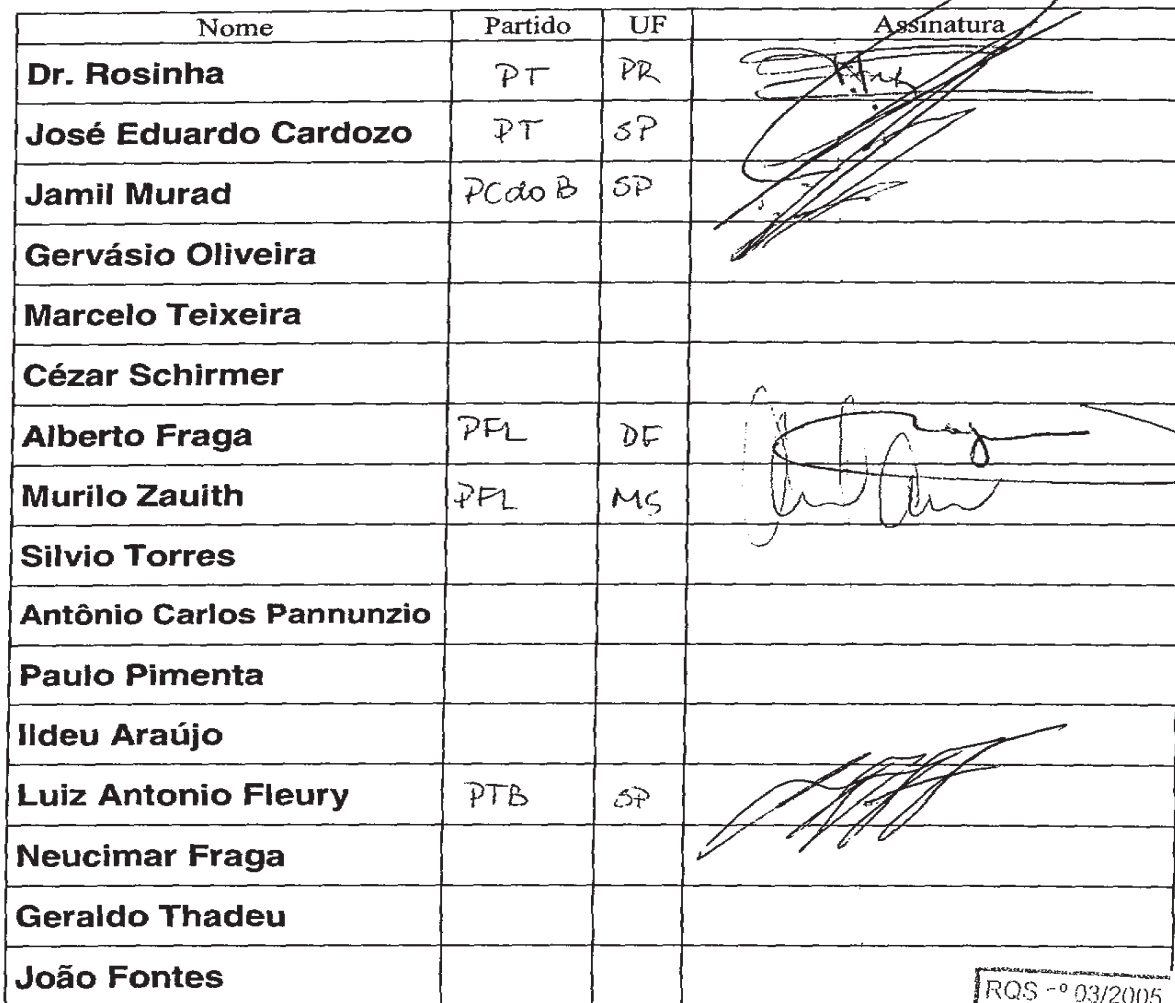 Nome Partido UF Assinatura
Dr. Rosinha PT PR
José Eduardo Cardozo PT SP
Jamil Murad PCdoB SP
Gervásio Oliveira
Marcelo Teixeira
Cézar Schirmer
Alberto Fraga PFL DF
Murilo Zauith PFL MS
Silvio Torres
Antônio Carlos Pannunzio
Paulo Pimenta
Ildeu Araújo
Luiz Antonio Fleury PTB SP
Neucimar Fraga
Geraldo Thadeu
João Fontes
RQS -º 03/2005